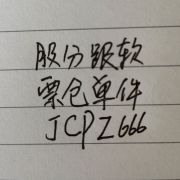 股分跟软
票仓单件
JCPZ666